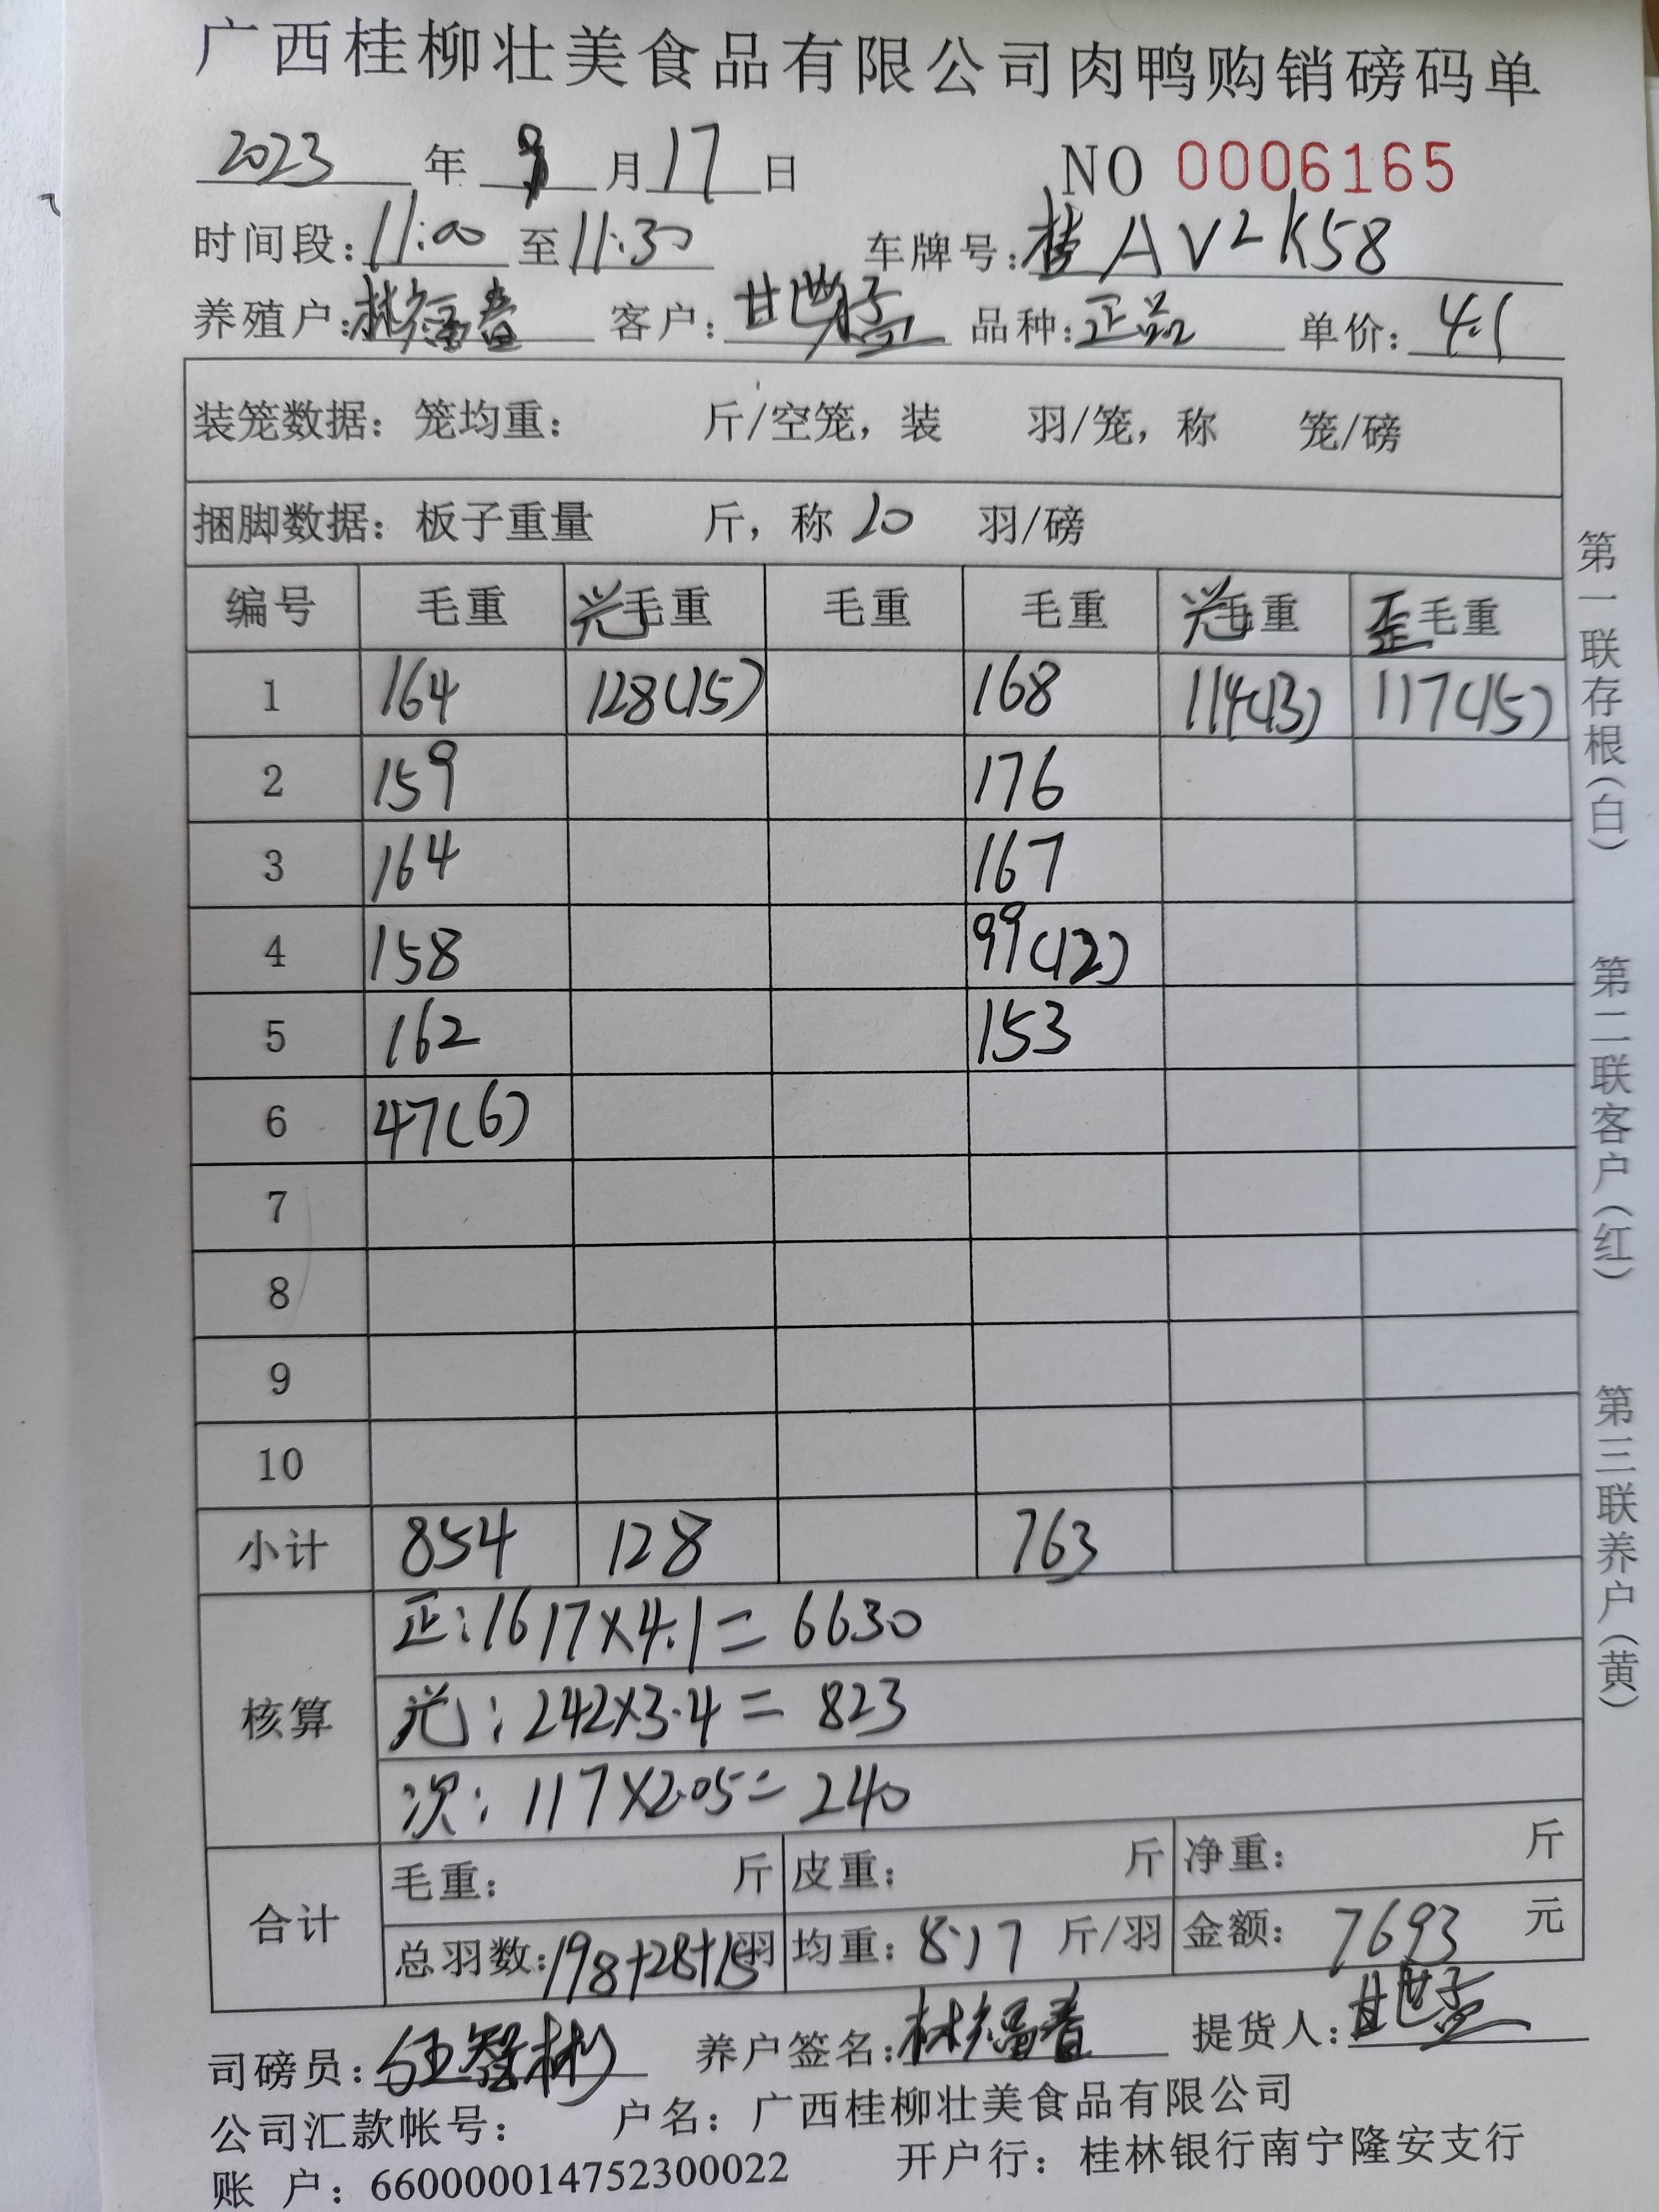 广西桂柳壮美食品有限公司肉鸭购销磅码单
2023 年 月 17 日 NO 0006165
时间段：11:00 至 11:30 车牌号：桂AV2K58
养殖户：林福春 客户：甘世孟 品种：正品 单价：4.1
装笼数据：笼均重： 斤/空笼，装 羽/笼，称 笼/磅
捆脚数据：板子重量 斤，称 20 羽/磅
编号 毛重 光毛重 毛重 毛重 光毛重 歪毛重
1 164 128(15) 168 114(13) 117(15)
2 159 176
3 164 167
4 158 99(12)
5 162 153
6 47(6)
7
8
9
10
小计 854 128 763
核算
正：1617×4.1=6630
光：242×3.4=823
次：117×2.05=240
合计
毛重： 斤 皮重： 斤 净重： 斤
总羽数：198+28+15羽 均重：8.17 斤/羽 金额：7693 元
司磅员： 养户签名：林福春 提货人：甘世孟
公司汇款帐号： 户名：广西桂柳壮美食品有限公司
账 户：660000014752300022 开户行：桂林银行南宁隆安支行
第一联存根(白) 第二联客户(红) 第三联养户(黄)